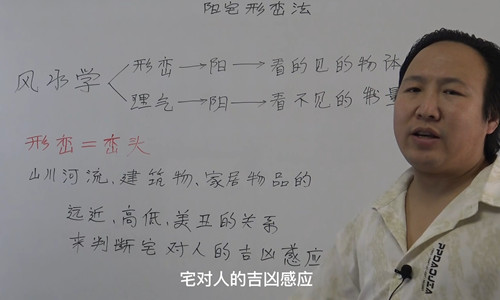 阳宅形峦法
形峦→阳→看的见的物体
风水学
理气→阳→看不见的量
形峦=峦头
山川河流、建筑物、家居物品的
远近、高低、美丑的关系
来判断宅对人的吉凶感应
宅对人的吉凶感应